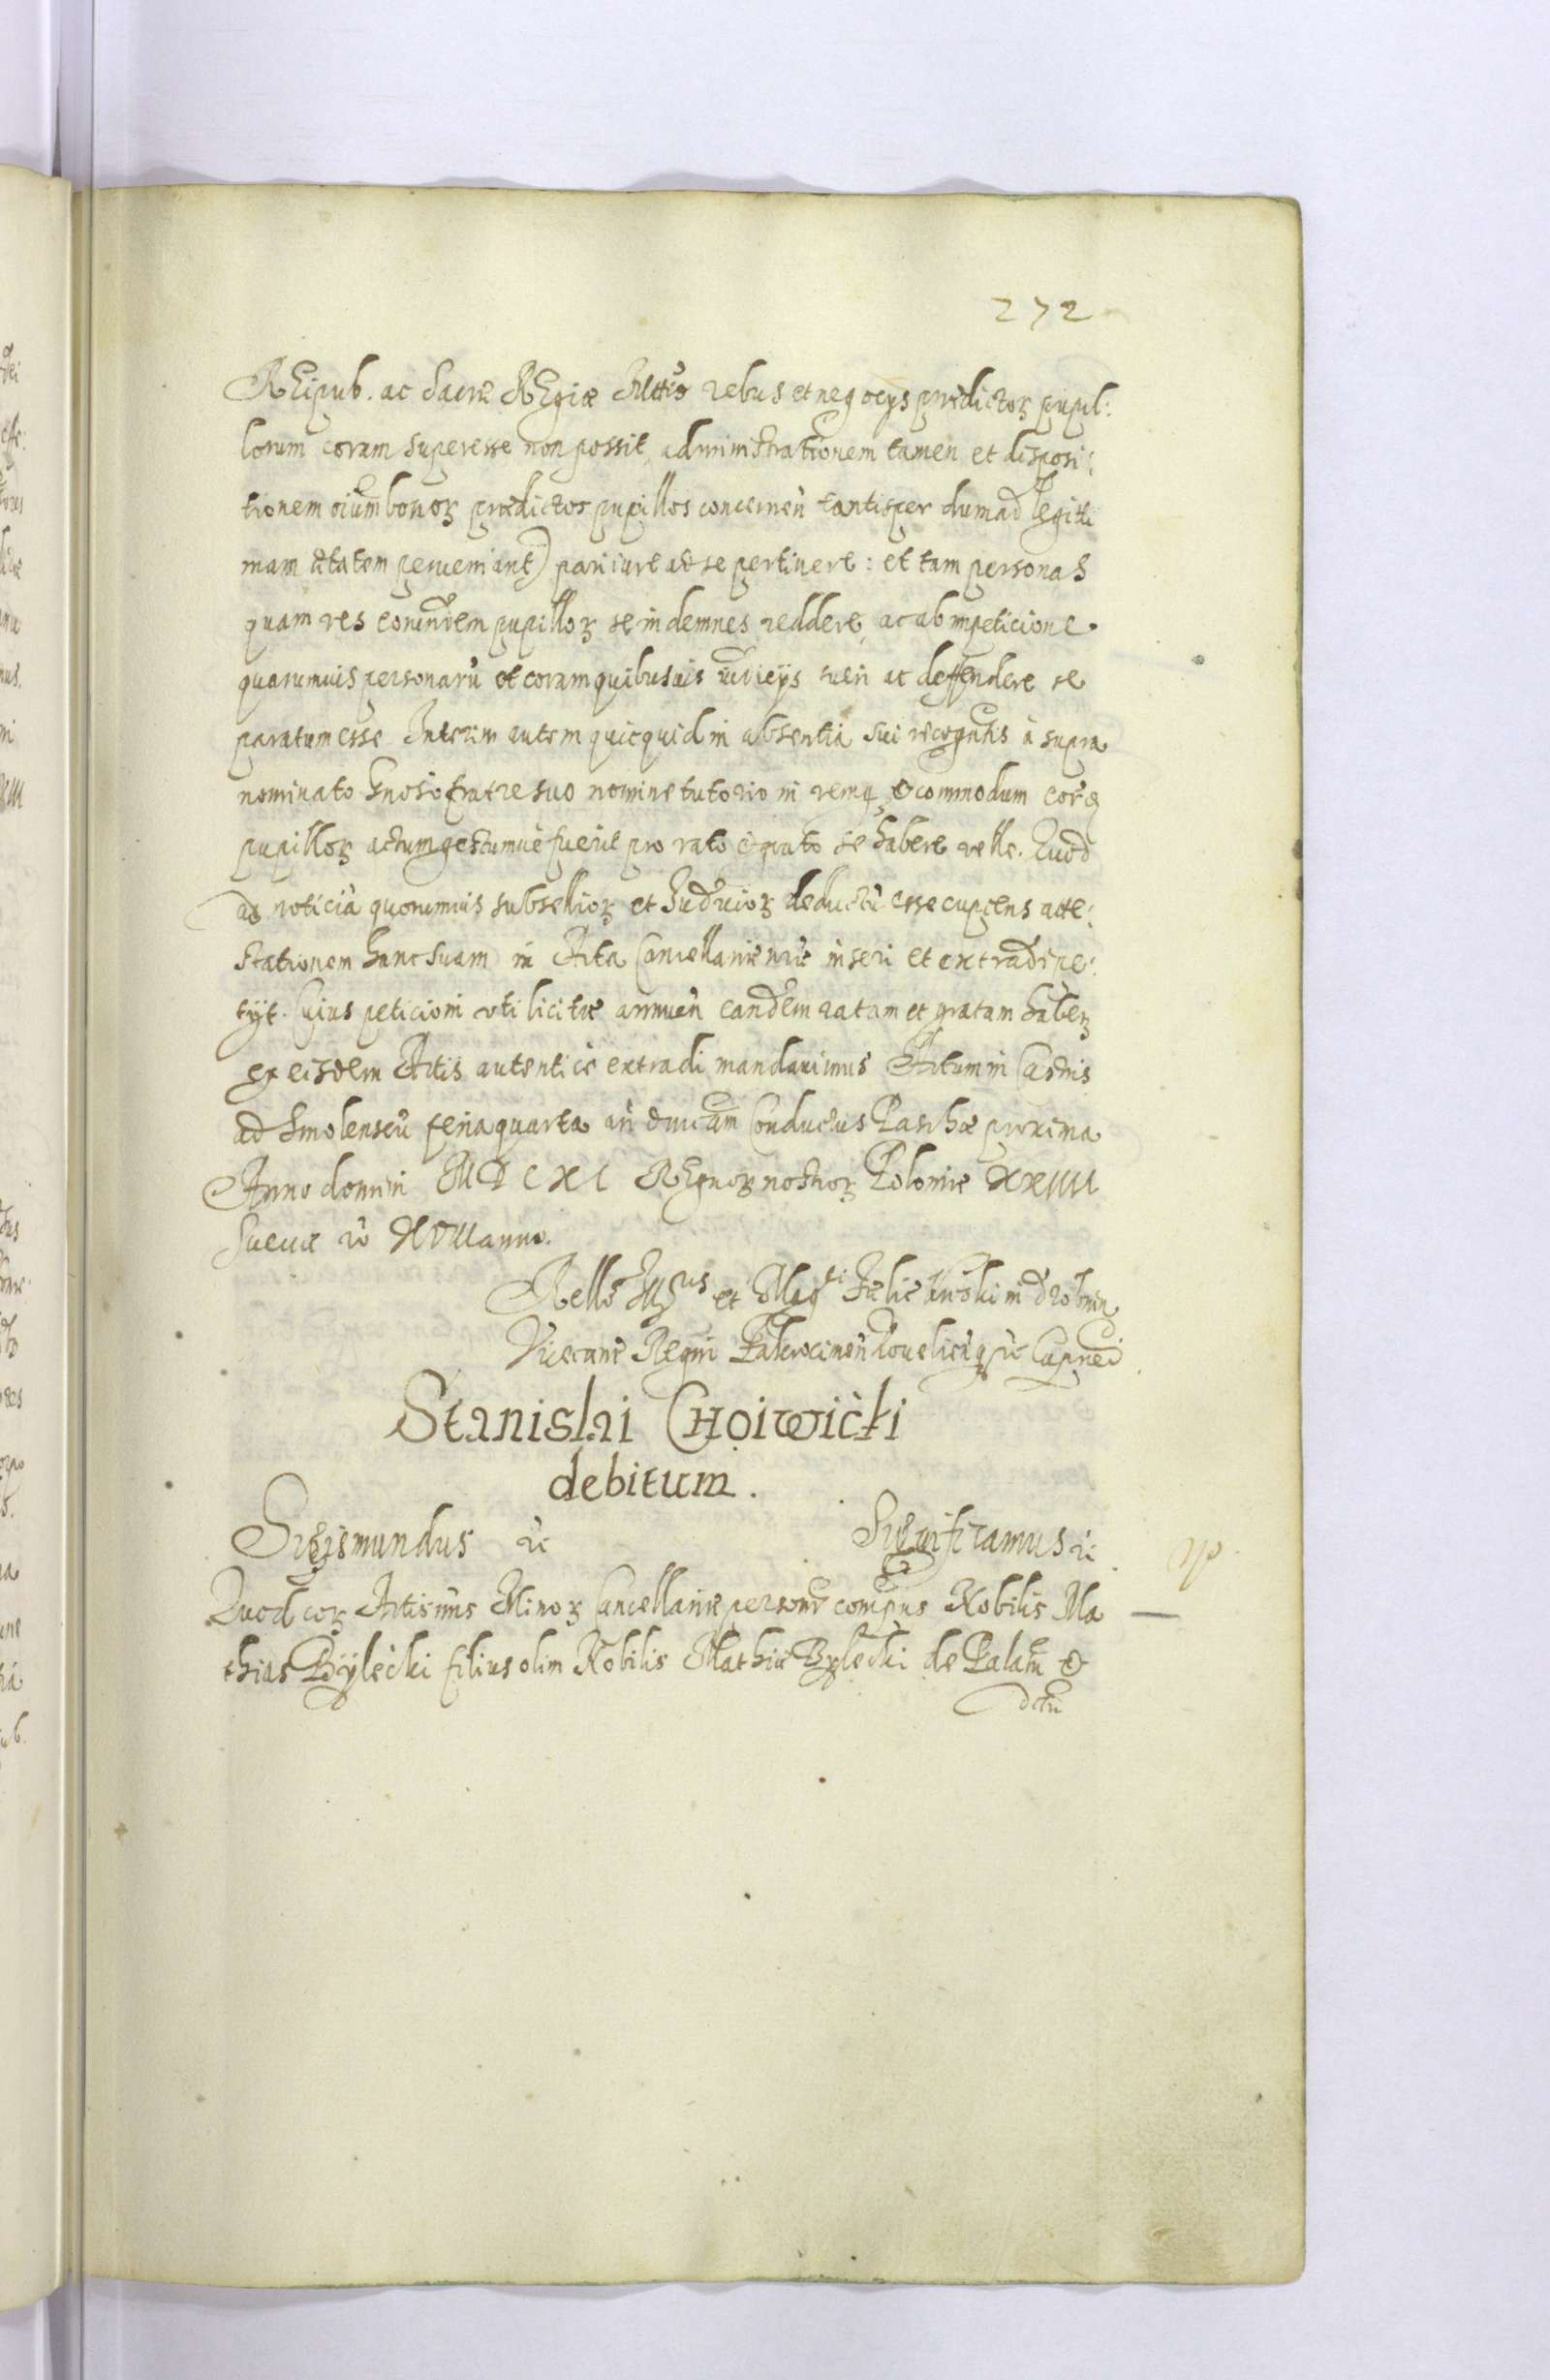 272
REipub. ac Sacræ REgiæ Mttis rebus et negocijs prædictoꝝ pupil:
lorum coram superesse non possit, administrationem tamen et disposi:
tionem oium bonoꝝ prædictos pupillos concernen̄ tantisper dum ad legitti
mam ætatem perueniant) pari iure ad se pertinere: et tam personas
quam res eorundem pupilloꝝ se indemnes reddere, ac ab impeticione
quarumuis personarū et coram quibusuis iudicijs tueri ac deffendere se
paratum esse Interim autem quicquid in absentia sui recogntis à supra
nominato Gnoso fratre suo nomine tutorio in remq̨ & commodum eorꝗ
pupilloꝝ actum gestumue fuerit pro rato & grato se habere velle. Quod
ad noticiā quorumuis subsellioꝝ et Iudicioꝝ deductū esse cupiens atte:
stationem hanc suam in Acta Cancellariæ nræ inseri et extradi pe:
tijt. Cuius peticioni vti licitæ annuen̄ eandem ratam et gratam haben̄
ex eisdem Actis autenticè extradi mandauimus Actum in Castris
ad Smolenscū feria quarta an̄ dnicam Conductus Paschæ proxima
Anno domini MDCXI REgnoꝝ nostroꝝ Poloniæ XXIIII
Sueciæ vò XVII anno.
Rello Illus et Magci Fælic Kriski in Drobnin
Vicecanc Regni
Stanislai CHoiwićki
debitum.
Sigismundus &c Significamus &c
Quod coꝝ Actis nris Minoꝝ Cancellariæ personr compns Nobilis Ma
thias Bÿlećki filius olim Nobilis Mathiæ Bylećki de Palatu &
dctu